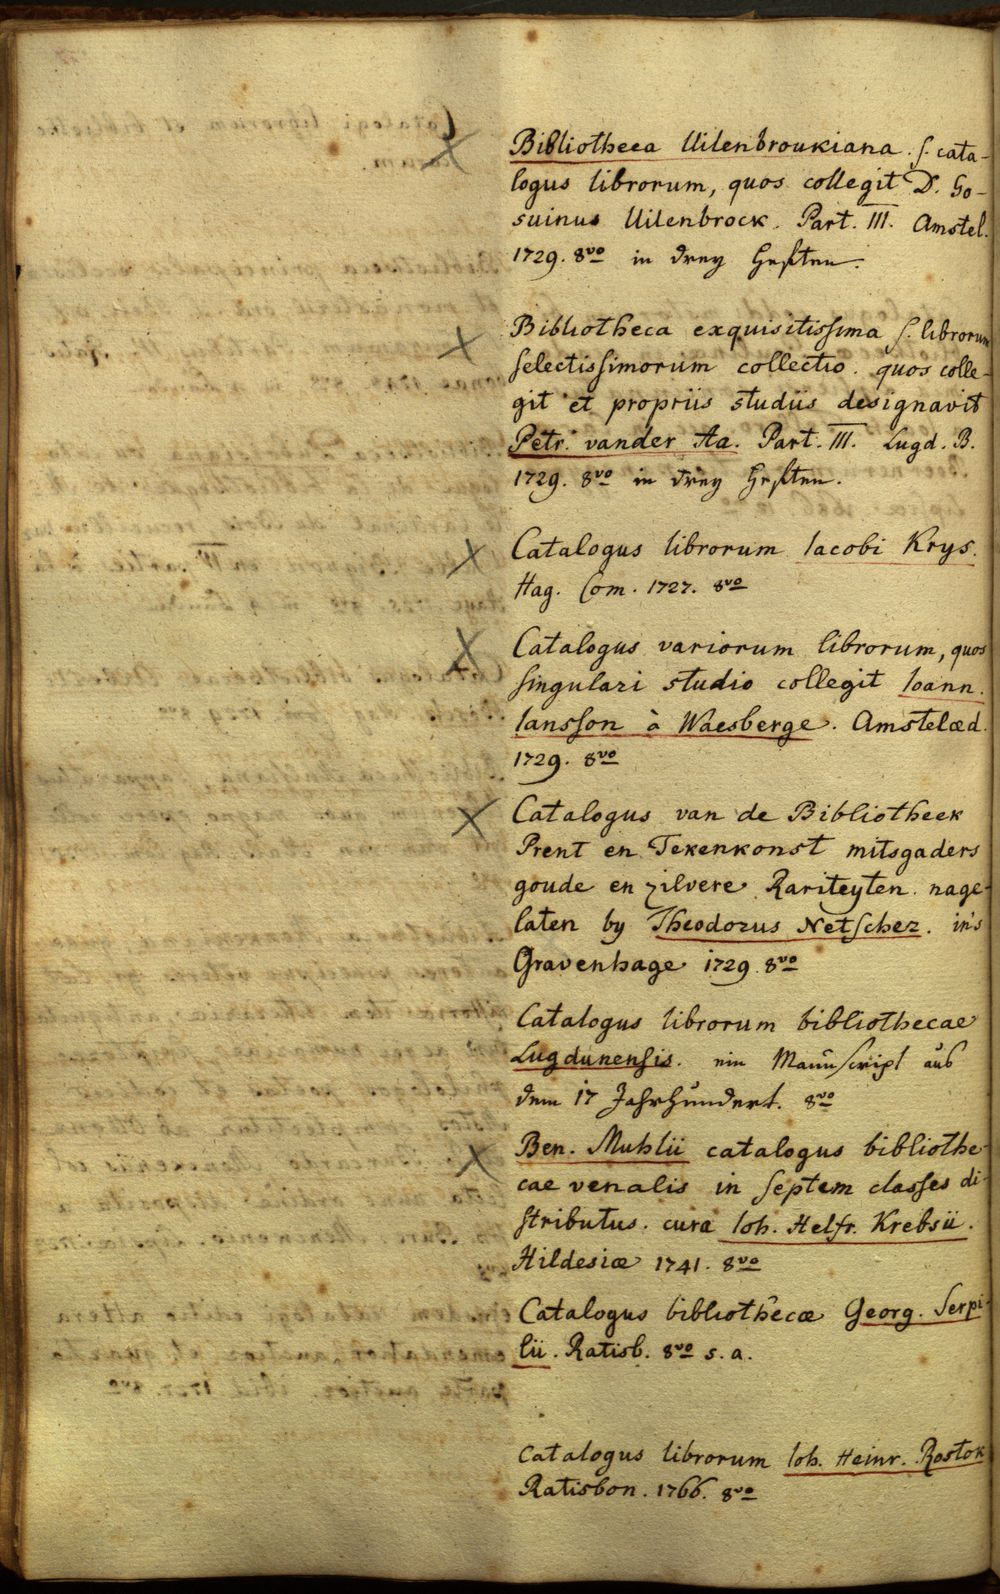 Bibliotheca Uilenbroukiana. s. cata-
logus librorum, quos collegit D. Go-
suinus Uilenbrock. Part. III. Amstel.
1729. 8vo in drey Heften.
Bibliotheca exquisitissima s. librorum
selectissimorum collectio. quos colle-
git et propriis studiis designavit
Petr. vander Aa. Part. III. Lugd. B.
1729. 8vo in drey Heften.
Catalogus librorum Iacobi Krys.
Hag. Com. 1727. 8vo
Catalogus variorum librorum, quos
singulari studio collegit Ioann.
Iansson à Waesberge. Amstelæd.
1729. 8vo
Catalogus van de Bibliotheek
Prent en Tekenkonst mitsgaders
goude en zilvere Rariteyten nage-
laten by Theodorus Netscher. in's
Gravenhage 1729. 8vo
Catalogus librorum bibliothecae
Lugdunensis. ein Manuscript aus
dem 17 Jahrhundert. 8vo
Ben. Muhlii catalogus bibliothe-
cae venalis in septem classes di-
stributus. cura Ioh. Helfr. Krebsii.
Hildesiæ 1741. 8vo
Catalogus bibliothecæ Georg. Serpi-
lii. Ratisb. 8vo s. a.
Catalogus librorum Ioh. Heinr. Rostok
Ratisbon. 1766. 8vo